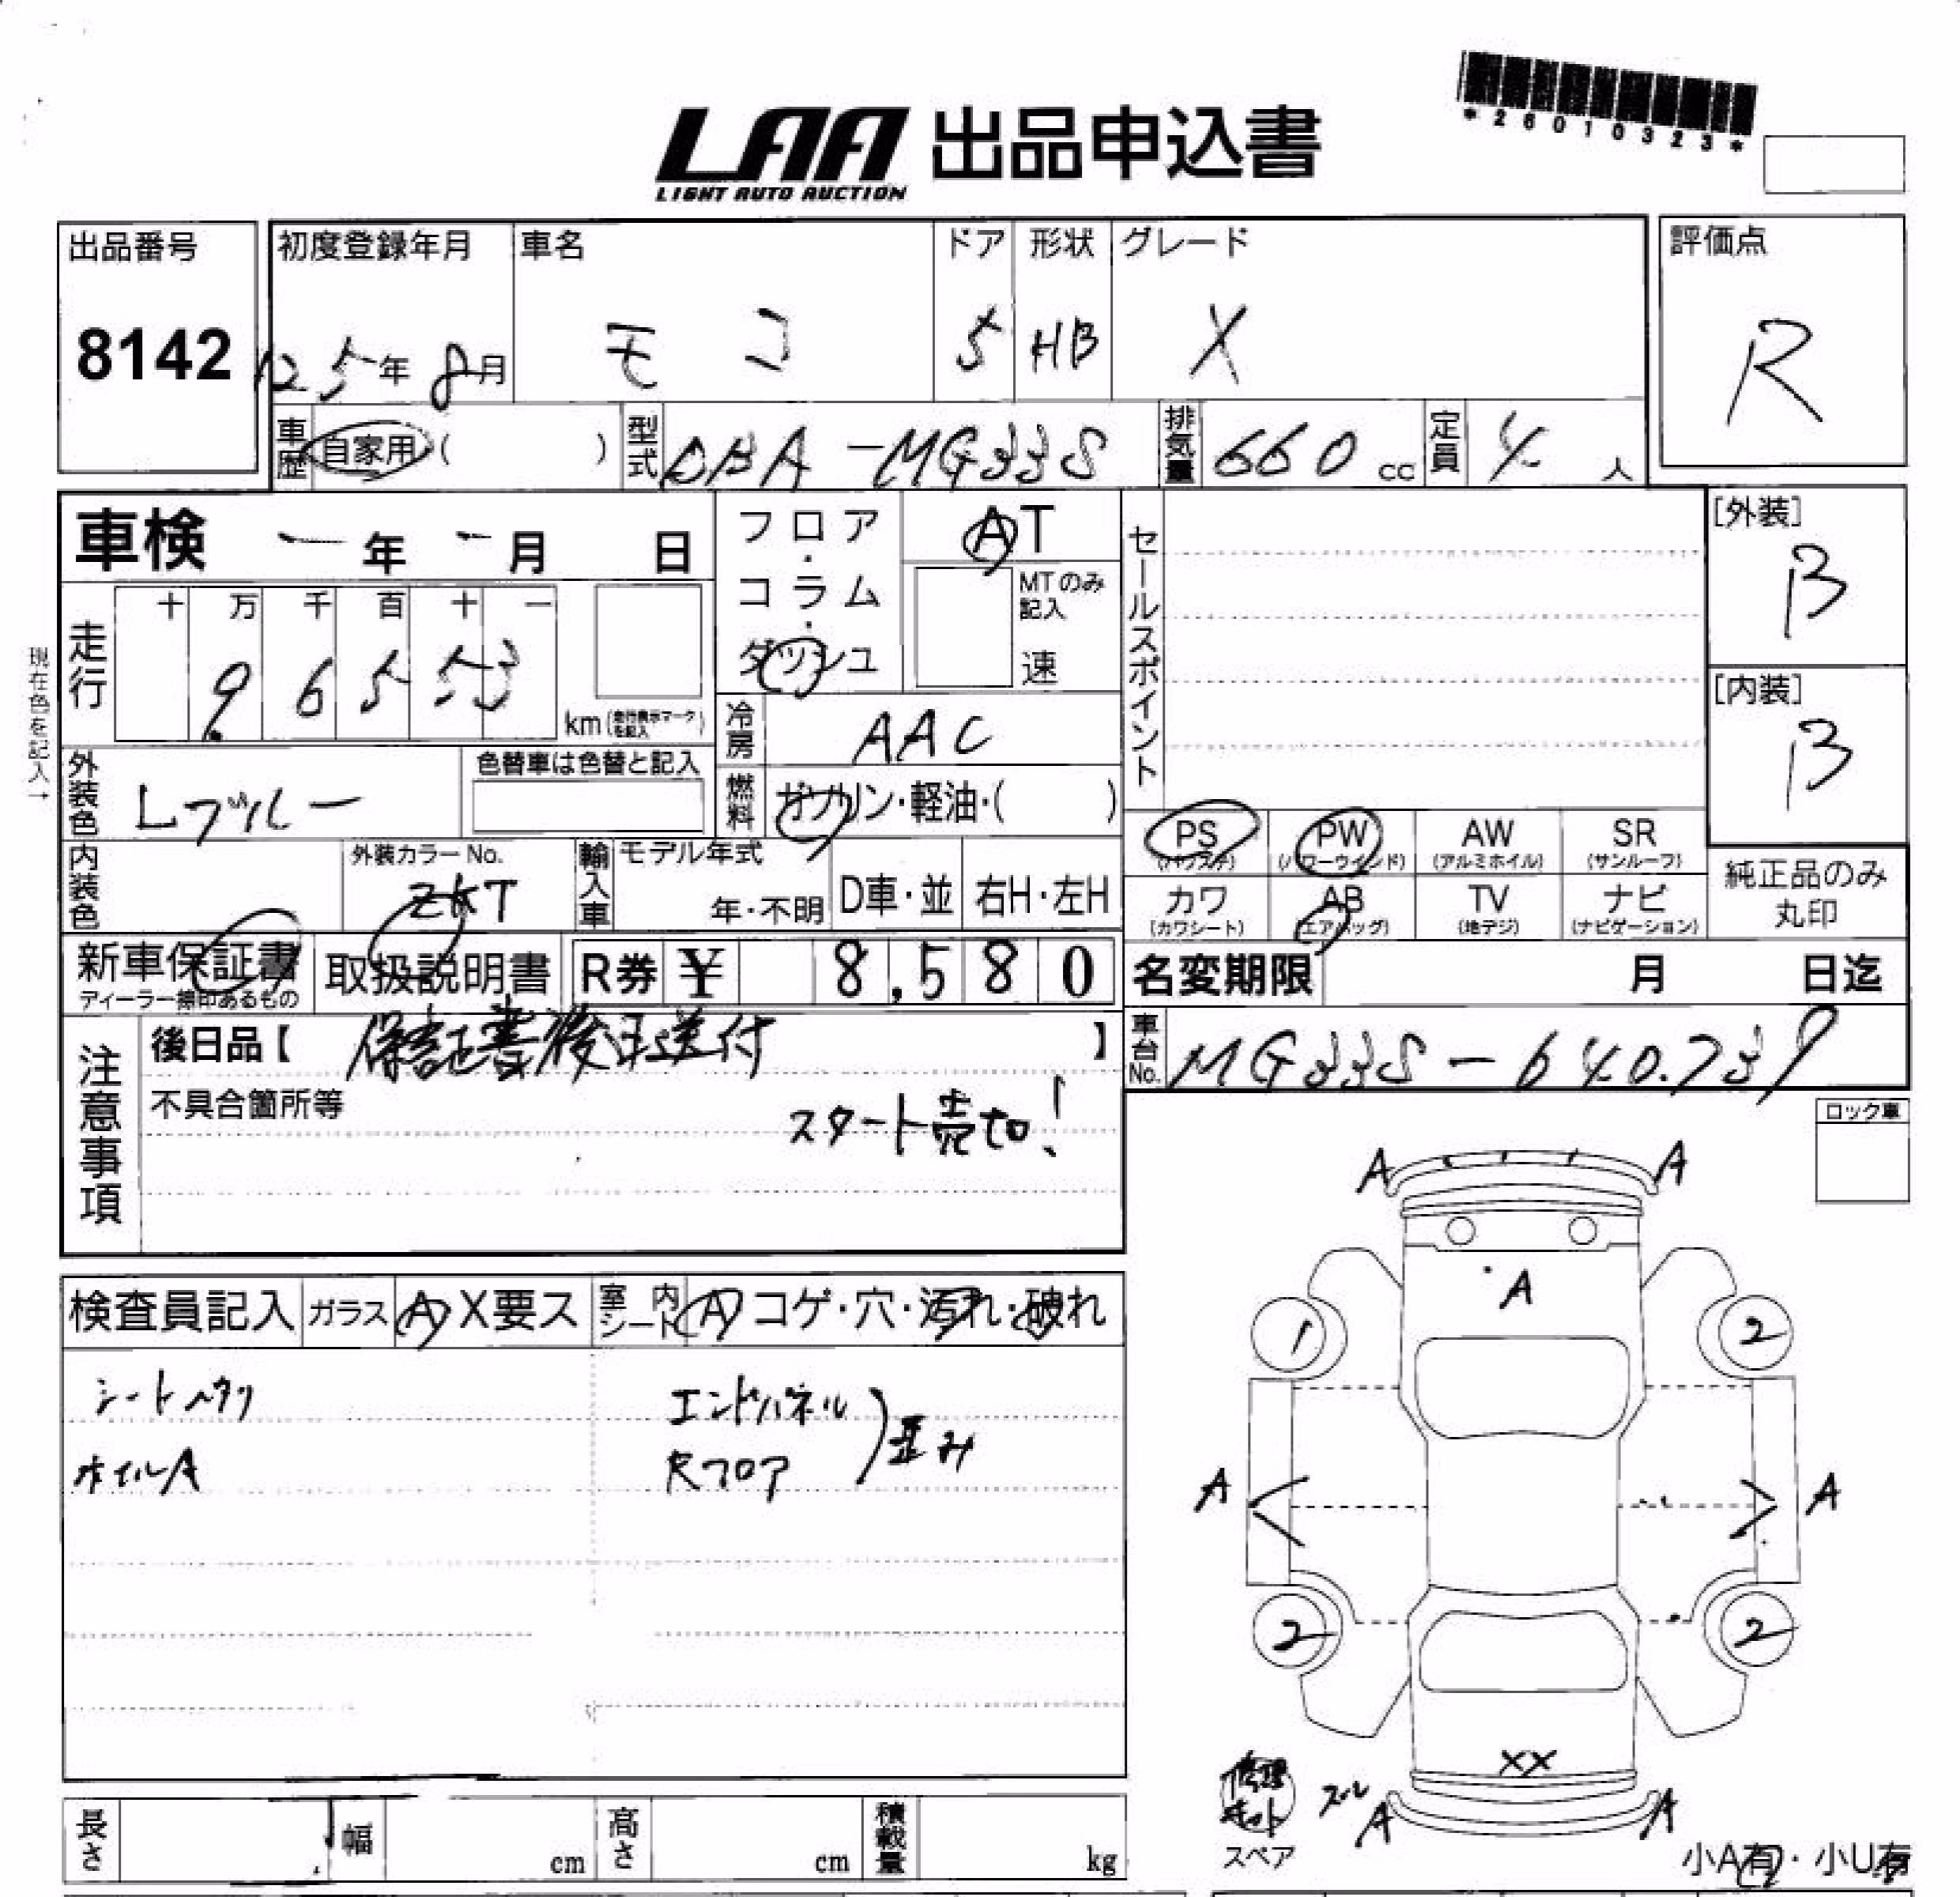 *26010323*
LAA 出品申込書
LIGHT AUTO AUCTION
出品番号 初度登録年月 車名 ドア 形状 グレード 評価点
8142 25年 8月 モコ 5 HB X R
車歴 自家用 ( ) 型式 DBA-MG33S 排気量 660 cc 定員 4 人
車検 - 年 - 月 日 フロア・コラム・ダッシュ AT セールスポイント [外装] B
MTのみ記入 速
走行 十 万 千 百 十 一
9 6 5 5 3 km (走行表示マークを記入)
現在色を記入→
冷房 AAC [内装] B
外装色 Lブルー 色替車は色替と記入 燃料 ガソリン・軽油・( )
PS (パワステ) PW (パワーウインド) AW (アルミホイル) SR (サンルーフ)
内装色 外装カラーNo. ZKT 輸入車 モデル年式 年・不明 D車・並 右H・左H
カワ (カワシート) AB (エアバッグ) TV (地デジ) ナビ (ナビゲーション) 純正品のみ丸印
新車保証書 ディーラー捺印あるもの 取扱説明書 R券 ¥ 8,580 名変期限 月 日迄
注意事項 後日品【 保証書後日送付 】 車台No. MG33S-640739
不具合箇所等
スタート売切!
ロック車
A A
A
検査員記入 ガラス A X要ス 室内シート A コゲ・穴・汚れ・破れ
1 2
シートヘタリ エンドパネル
ホイルA Rフロア 歪み
A A
2 2
XX
修理キット ズレ A A
スペア 小A有・小U有
長さ 幅 cm 高さ cm 積載量 kg